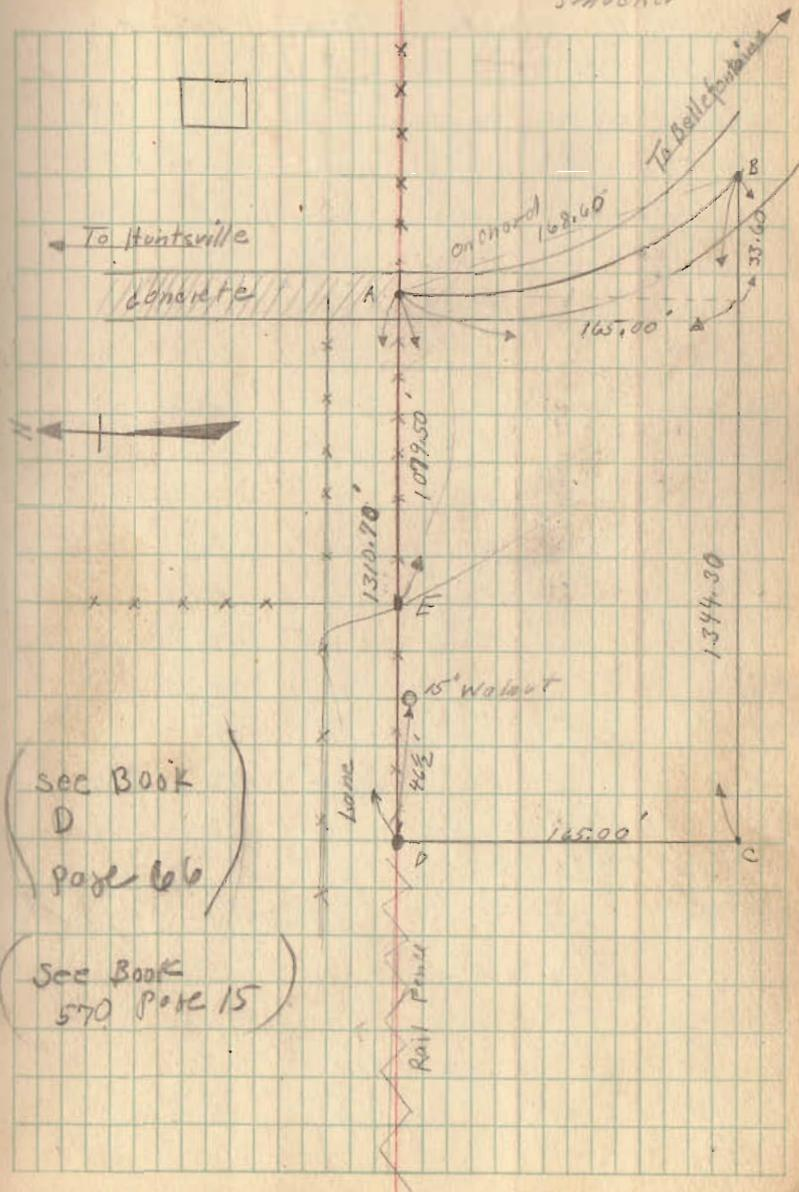 To Bellefontaine
B
on chord 168.60'
To Huntsville
33.60
concrete
A
165.00'
N
1079.50'
1310.70'
E
1344.30
15" Walnut
46½'
Lane
see Book
D
page 66
165.00'
D
C
see Book
570 page 15
Rail Fence